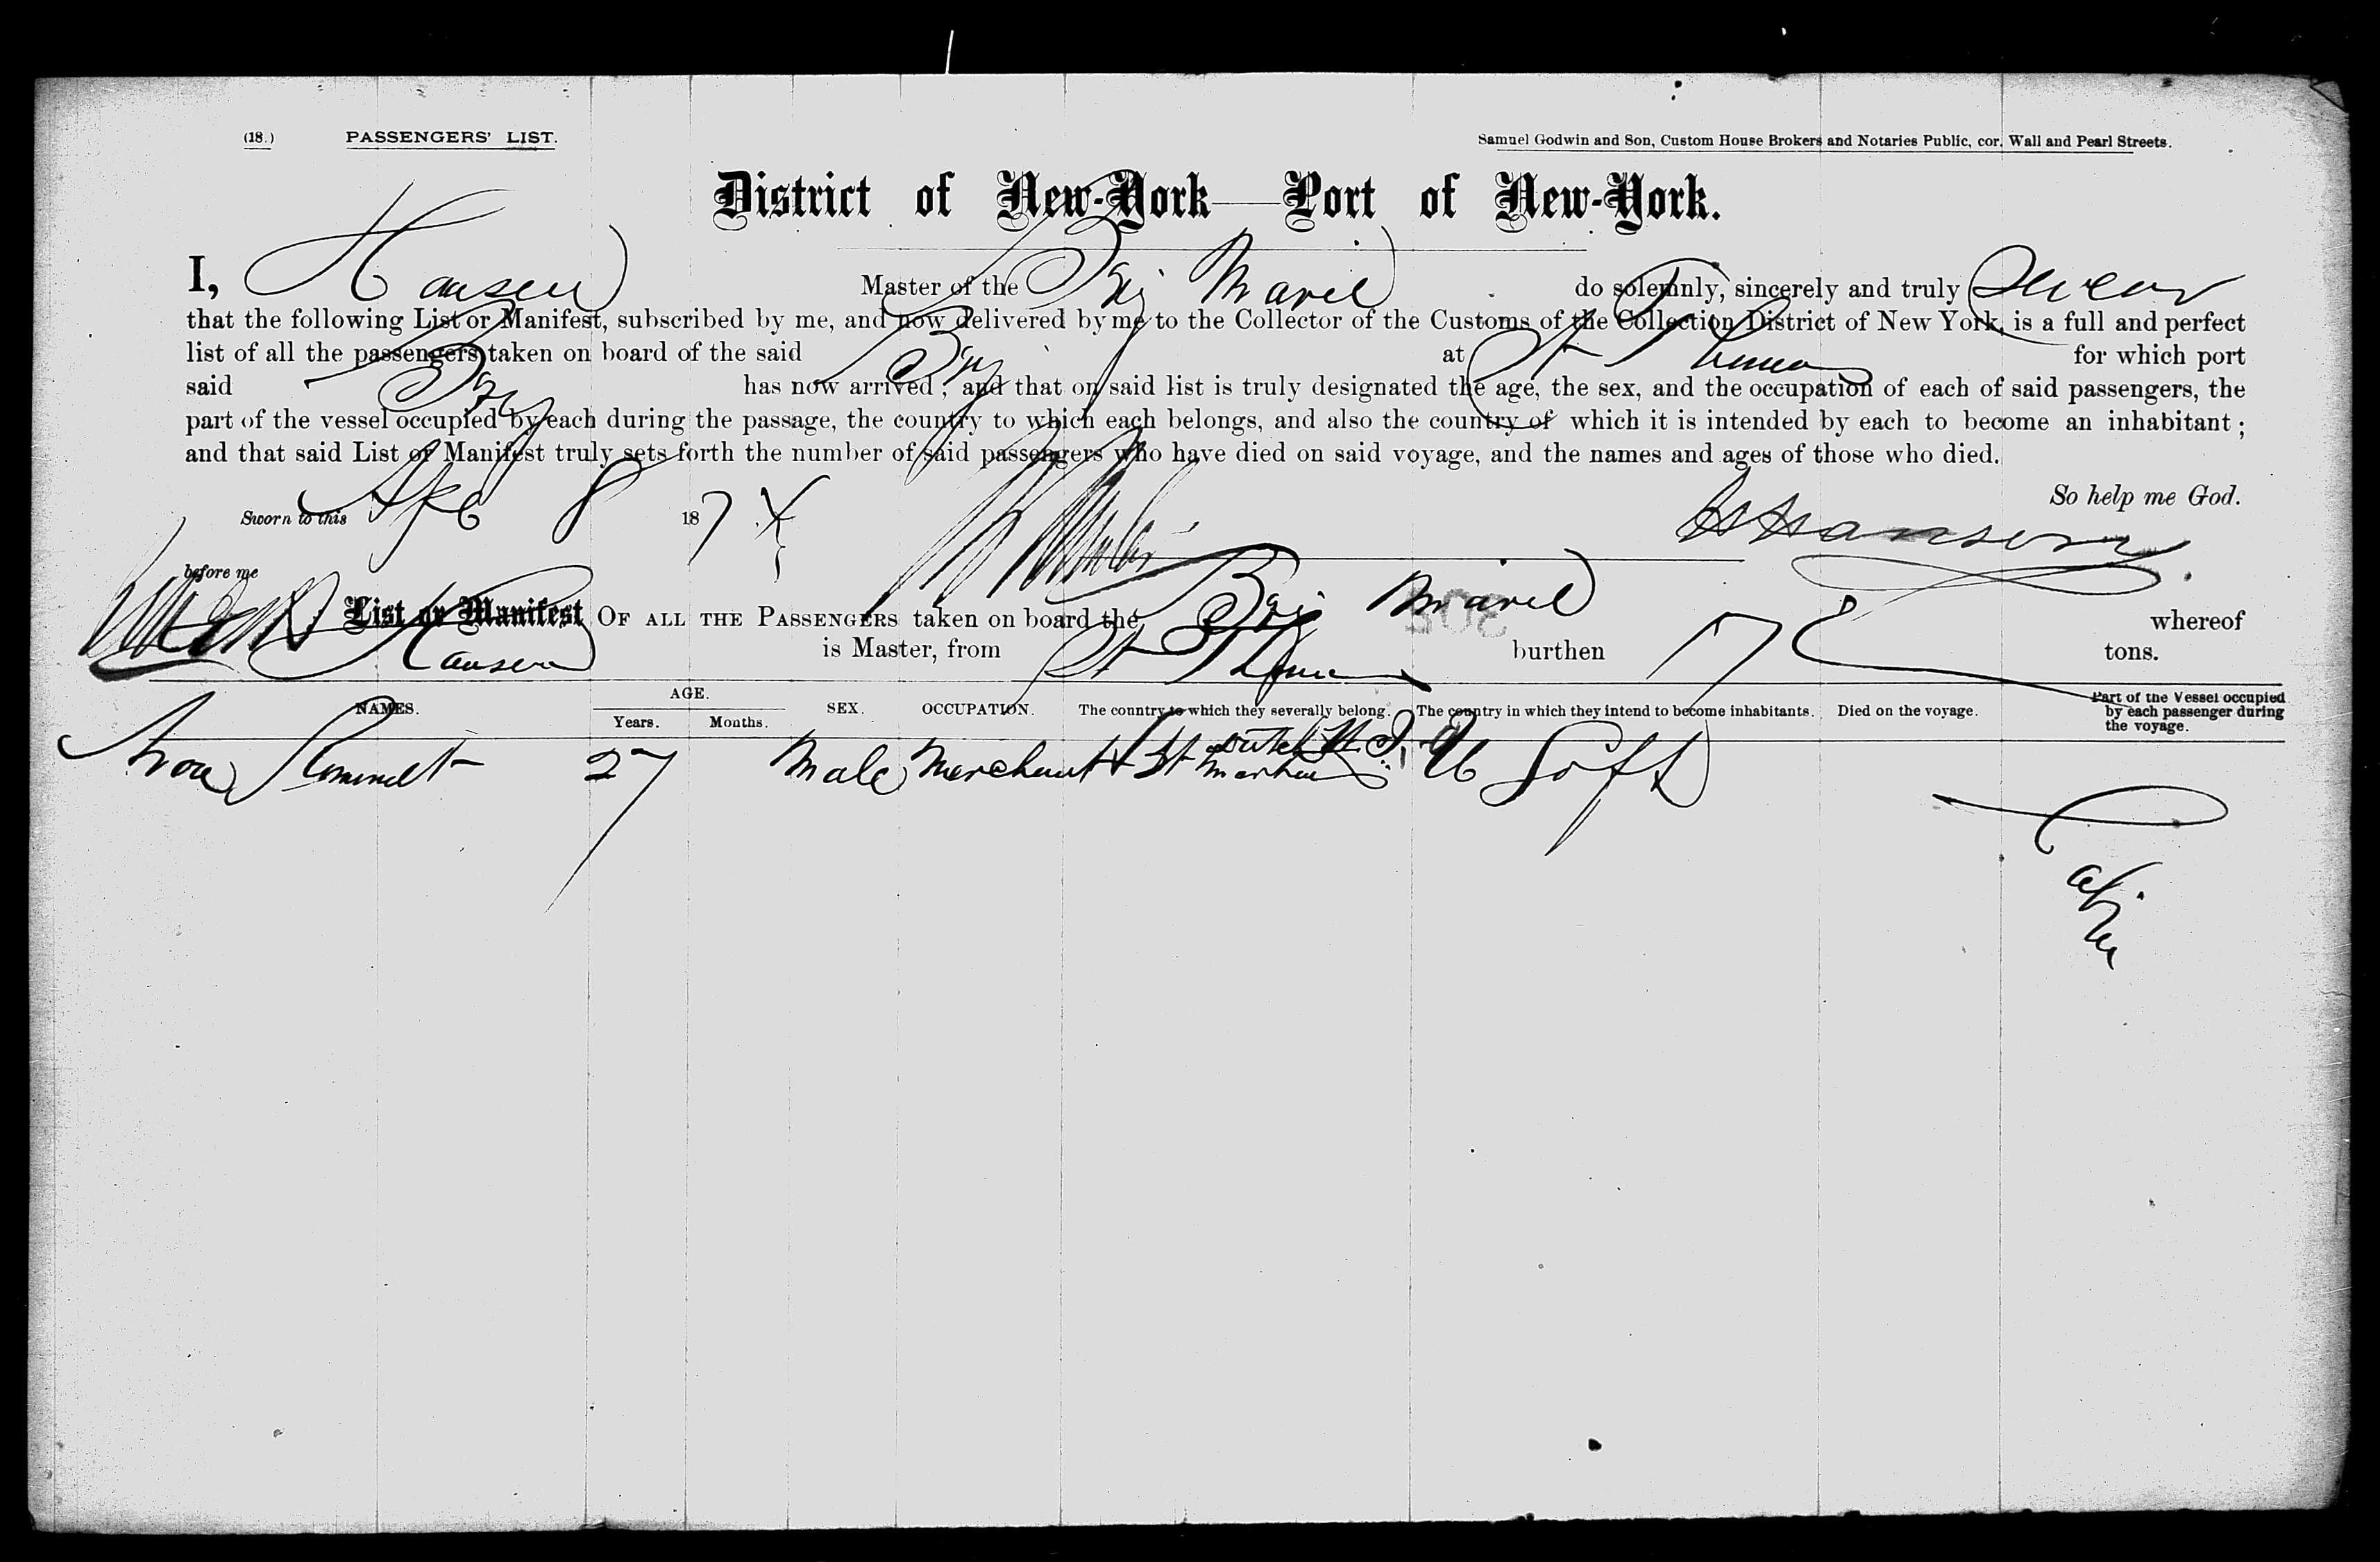 (18.) PASSENGERS' LIST.
Samuel Godwin and Son, Custom House Brokers and Notaries Public, cor. Wall and Pearl Streets.
District of New-York—Port of New-York.
I, Hansen Master of the Brig Mariel do solemnly, sincerely and truly Swear
that the following List or Manifest, subscribed by me, and now delivered by me to the Collector of the Customs of the Collection District of New York, is a full and perfect
list of all the passengers taken on board of the said Brig at St Thomas for which port
said Brig has now arrived; and that on said list is truly designated the age, the sex, and the occupation of each of said passengers, the
part of the vessel occupied by each during the passage, the country to which each belongs, and also the country of which it is intended by each to become an inhabitant;
and that said List or Manifest truly sets forth the number of said passengers who have died on said voyage, and the names and ages of those who died.
So help me God.
Sworn to this 8 1874
Hansen
before me
List or Manifest OF ALL THE PASSENGERS taken on board the Brig Mariel whereof
Hansen is Master, from St Thomas burthen 178 tons.
NAMES. AGE. Years. Months. SEX. OCCUPATION. The country to which they severally belong. The country in which they intend to become inhabitants. Died on the voyage. Part of the Vessel occupied by each passenger during the voyage.
27 Male Merchant St Martin Dutch W. I. U